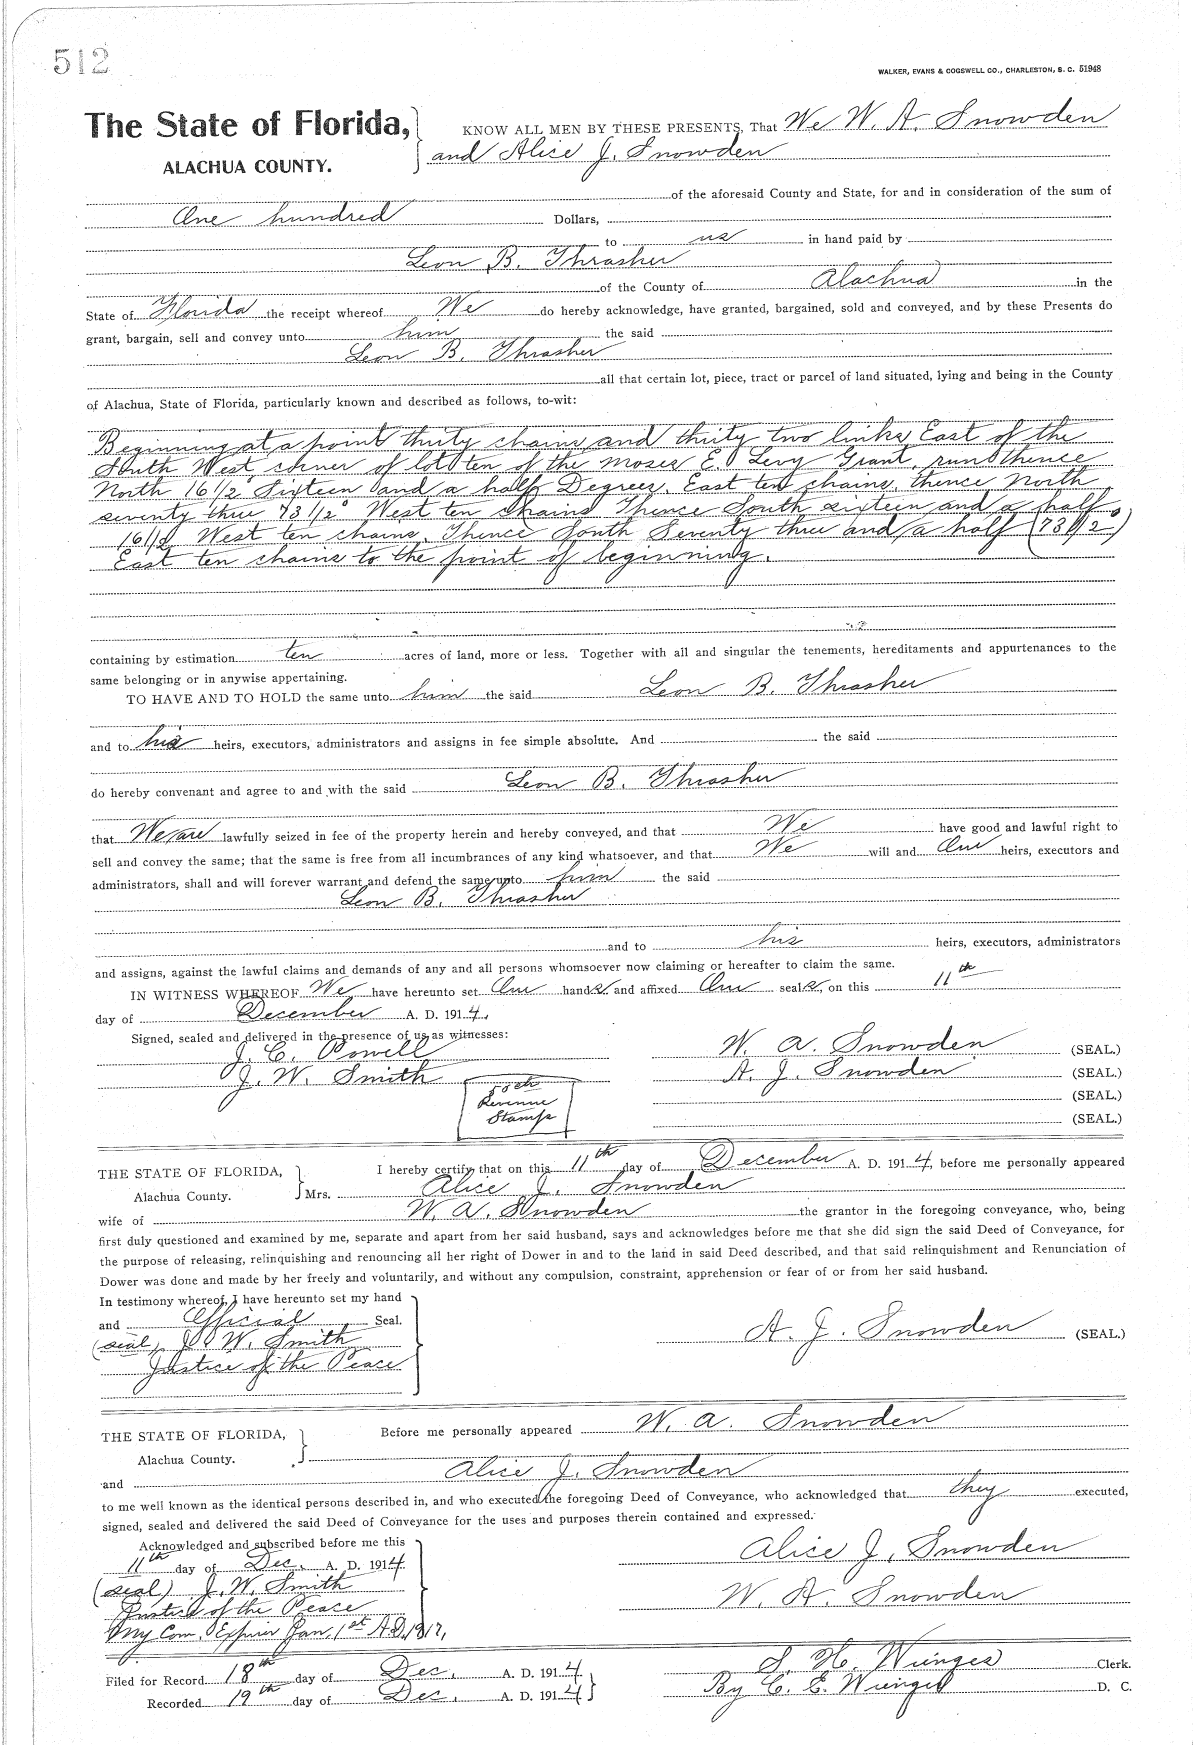 512
WALKER, EVANS & COGSWELL CO., CHARLESTON, S. C. 51948
The State of Florida, KNOW ALL MEN BY THESE PRESENTS, That We W. A. Snowden
ALACHUA COUNTY. and Alice J. Snowden
of the aforesaid County and State, for and in consideration of the sum of
One hundred Dollars,
to us in hand paid by
Leon B. Thrasher
of the County of Alachua in the
State of Florida the receipt whereof We do hereby acknowledge, have granted, bargained, sold and conveyed, and by these Presents do
grant, bargain, sell and convey unto him the said
Leon B. Thrasher
all that certain lot, piece, tract or parcel of land situated, lying and being in the County
of Alachua, State of Florida, particularly known and described as follows, to-wit:
Beginning at a point thirty chains and thirty two links East of the
South West corner of lot ten of the Moses E. Levy Grant, run thence
North 16 1/2° Sixteen and a half Degrees, East ten chains, thence North
seventy three 73 1/2° West ten chains Thence South sixteen and a half
16 1/2° West ten chains, Thence South Seventy three and a half (73 1/2°)
East ten chains to the point of beginning.
containing by estimation ten acres of land, more or less. Together with all and singular the tenements, hereditaments and appurtenances to the
same belonging or in anywise appertaining.
TO HAVE AND TO HOLD the same unto him the said Leon B. Thrasher
and to his heirs, executors, administrators and assigns in fee simple absolute. And the said
do hereby convenant and agree to and with the said Leon B. Thrasher
that We are lawfully seized in fee of the property herein and hereby conveyed, and that We have good and lawful right to
sell and convey the same; that the same is free from all incumbrances of any kind whatsoever, and that We will and Our heirs, executors and
administrators, shall and will forever warrant and defend the same unto him the said
Leon B. Thrasher
and to his heirs, executors, administrators
and assigns, against the lawful claims and demands of any and all persons whomsoever now claiming or hereafter to claim the same.
IN WITNESS WHEREOF We have hereunto set Our hands and affixed Our seals, on this 11th
day of December A. D. 1914,
Signed, sealed and delivered in the presence of us as witnesses:
J. C. Powell W. A. Snowden (SEAL.)
J. W. Smith A. J. Snowden (SEAL.)
(SEAL.)
(SEAL.)
Revenue
Stamps
THE STATE OF FLORIDA, I hereby certify that on this 11th day of December A. D. 1914, before me personally appeared
Alachua County. Mrs. Alice J. Snowden
wife of W. A. Snowden the grantor in the foregoing conveyance, who, being
first duly questioned and examined by me, separate and apart from her said husband, says and acknowledges before me that she did sign the said Deed of Conveyance, for
the purpose of releasing, relinquishing and renouncing all her right of Dower in and to the land in said Deed described, and that said relinquishment and Renunciation of
Dower was done and made by her freely and voluntarily, and without any compulsion, constraint, apprehension or fear of or from her said husband.
In testimony whereof, I have hereunto set my hand
and Official Seal.
(seal) J. W. Smith A. J. Snowden (SEAL.)
Justice of the Peace
THE STATE OF FLORIDA, Before me personally appeared W. A. Snowden
Alachua County.
and Alice J. Snowden
to me well known as the identical persons described in, and who executed the foregoing Deed of Conveyance, who acknowledged that they executed,
signed, sealed and delivered the said Deed of Conveyance for the uses and purposes therein contained and expressed.
Acknowledged and subscribed before me this
11th day of Dec. A. D. 1914. Alice J. Snowden
(seal) J. W. Smith
Justice of the Peace W. A. Snowden
My Com. Expires Jan. 1st A.D. 1917,
Filed for Record 18th day of Dec. A. D. 1914. S. H. Wienges Clerk.
Recorded 19th day of Dec. A. D. 1914 By C. E. Wienges D. C.